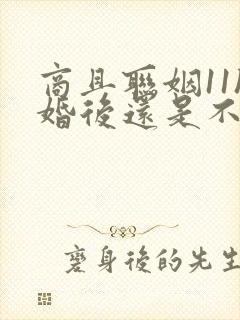 商且聯姻11
婚後還是不
変身後的先生